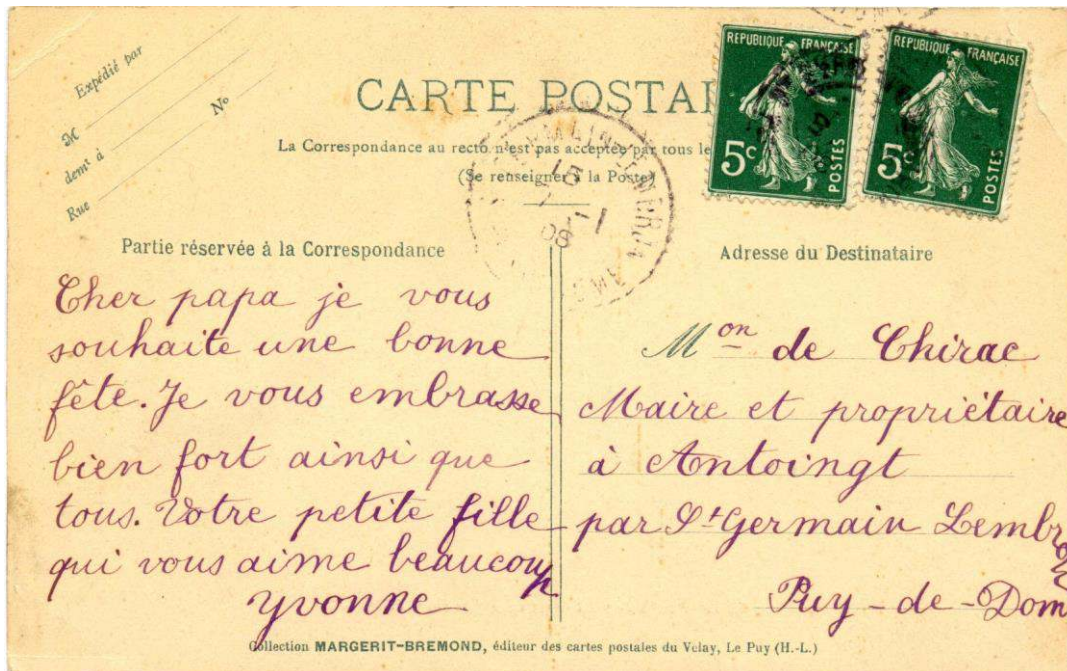 Expédié par
M
demt à
Rue
No
CARTE POSTAL
La Correspondance au recto n'est pas acceptée par tous le
(Se renseigner à la Poste)
REPUBLIQUE FRANÇAISE
5c
POSTES
REPUBLIQUE FRANÇAISE
5c
POSTES
15
1-1
08
Partie réservée à la Correspondance
Cher papa je vous
souhaite une bonne
fête. Je vous embrasse
bien fort ainsi que
tous. Votre petite fille
qui vous aime beaucoup
Yvonne
Adresse du Destinataire
Mon de Chirac
Maire et propriétaire
à Antoingt
par St Germain Lembron
Puy-de-Dom
Collection MARGERIT-BREMOND, éditeur des cartes postales du Velay, Le Puy (H.-L.)